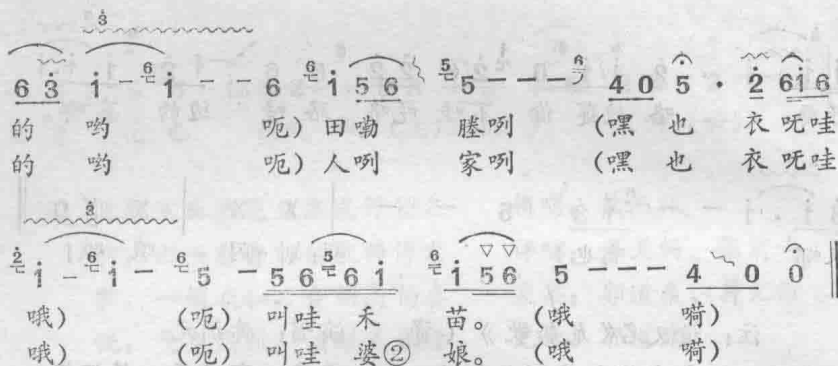 6 3 i — i — — 6 i 5 6 5 — — — 4 0 5 · 2 6 6
的 哟 呃）田嘞 塍咧 （嘿 也 衣 呒哇
的 哟 呃）人咧 家咧 （嘿 也 衣 呒哇
i — i — 5 — 5 6 6 1 i 5 6 5 — — — 4 0 0
哦） （呃）叫哇 禾 苗。 （哦 嗬）
哦） （呃）叫哇 婆② 娘。 （哦 嗬）